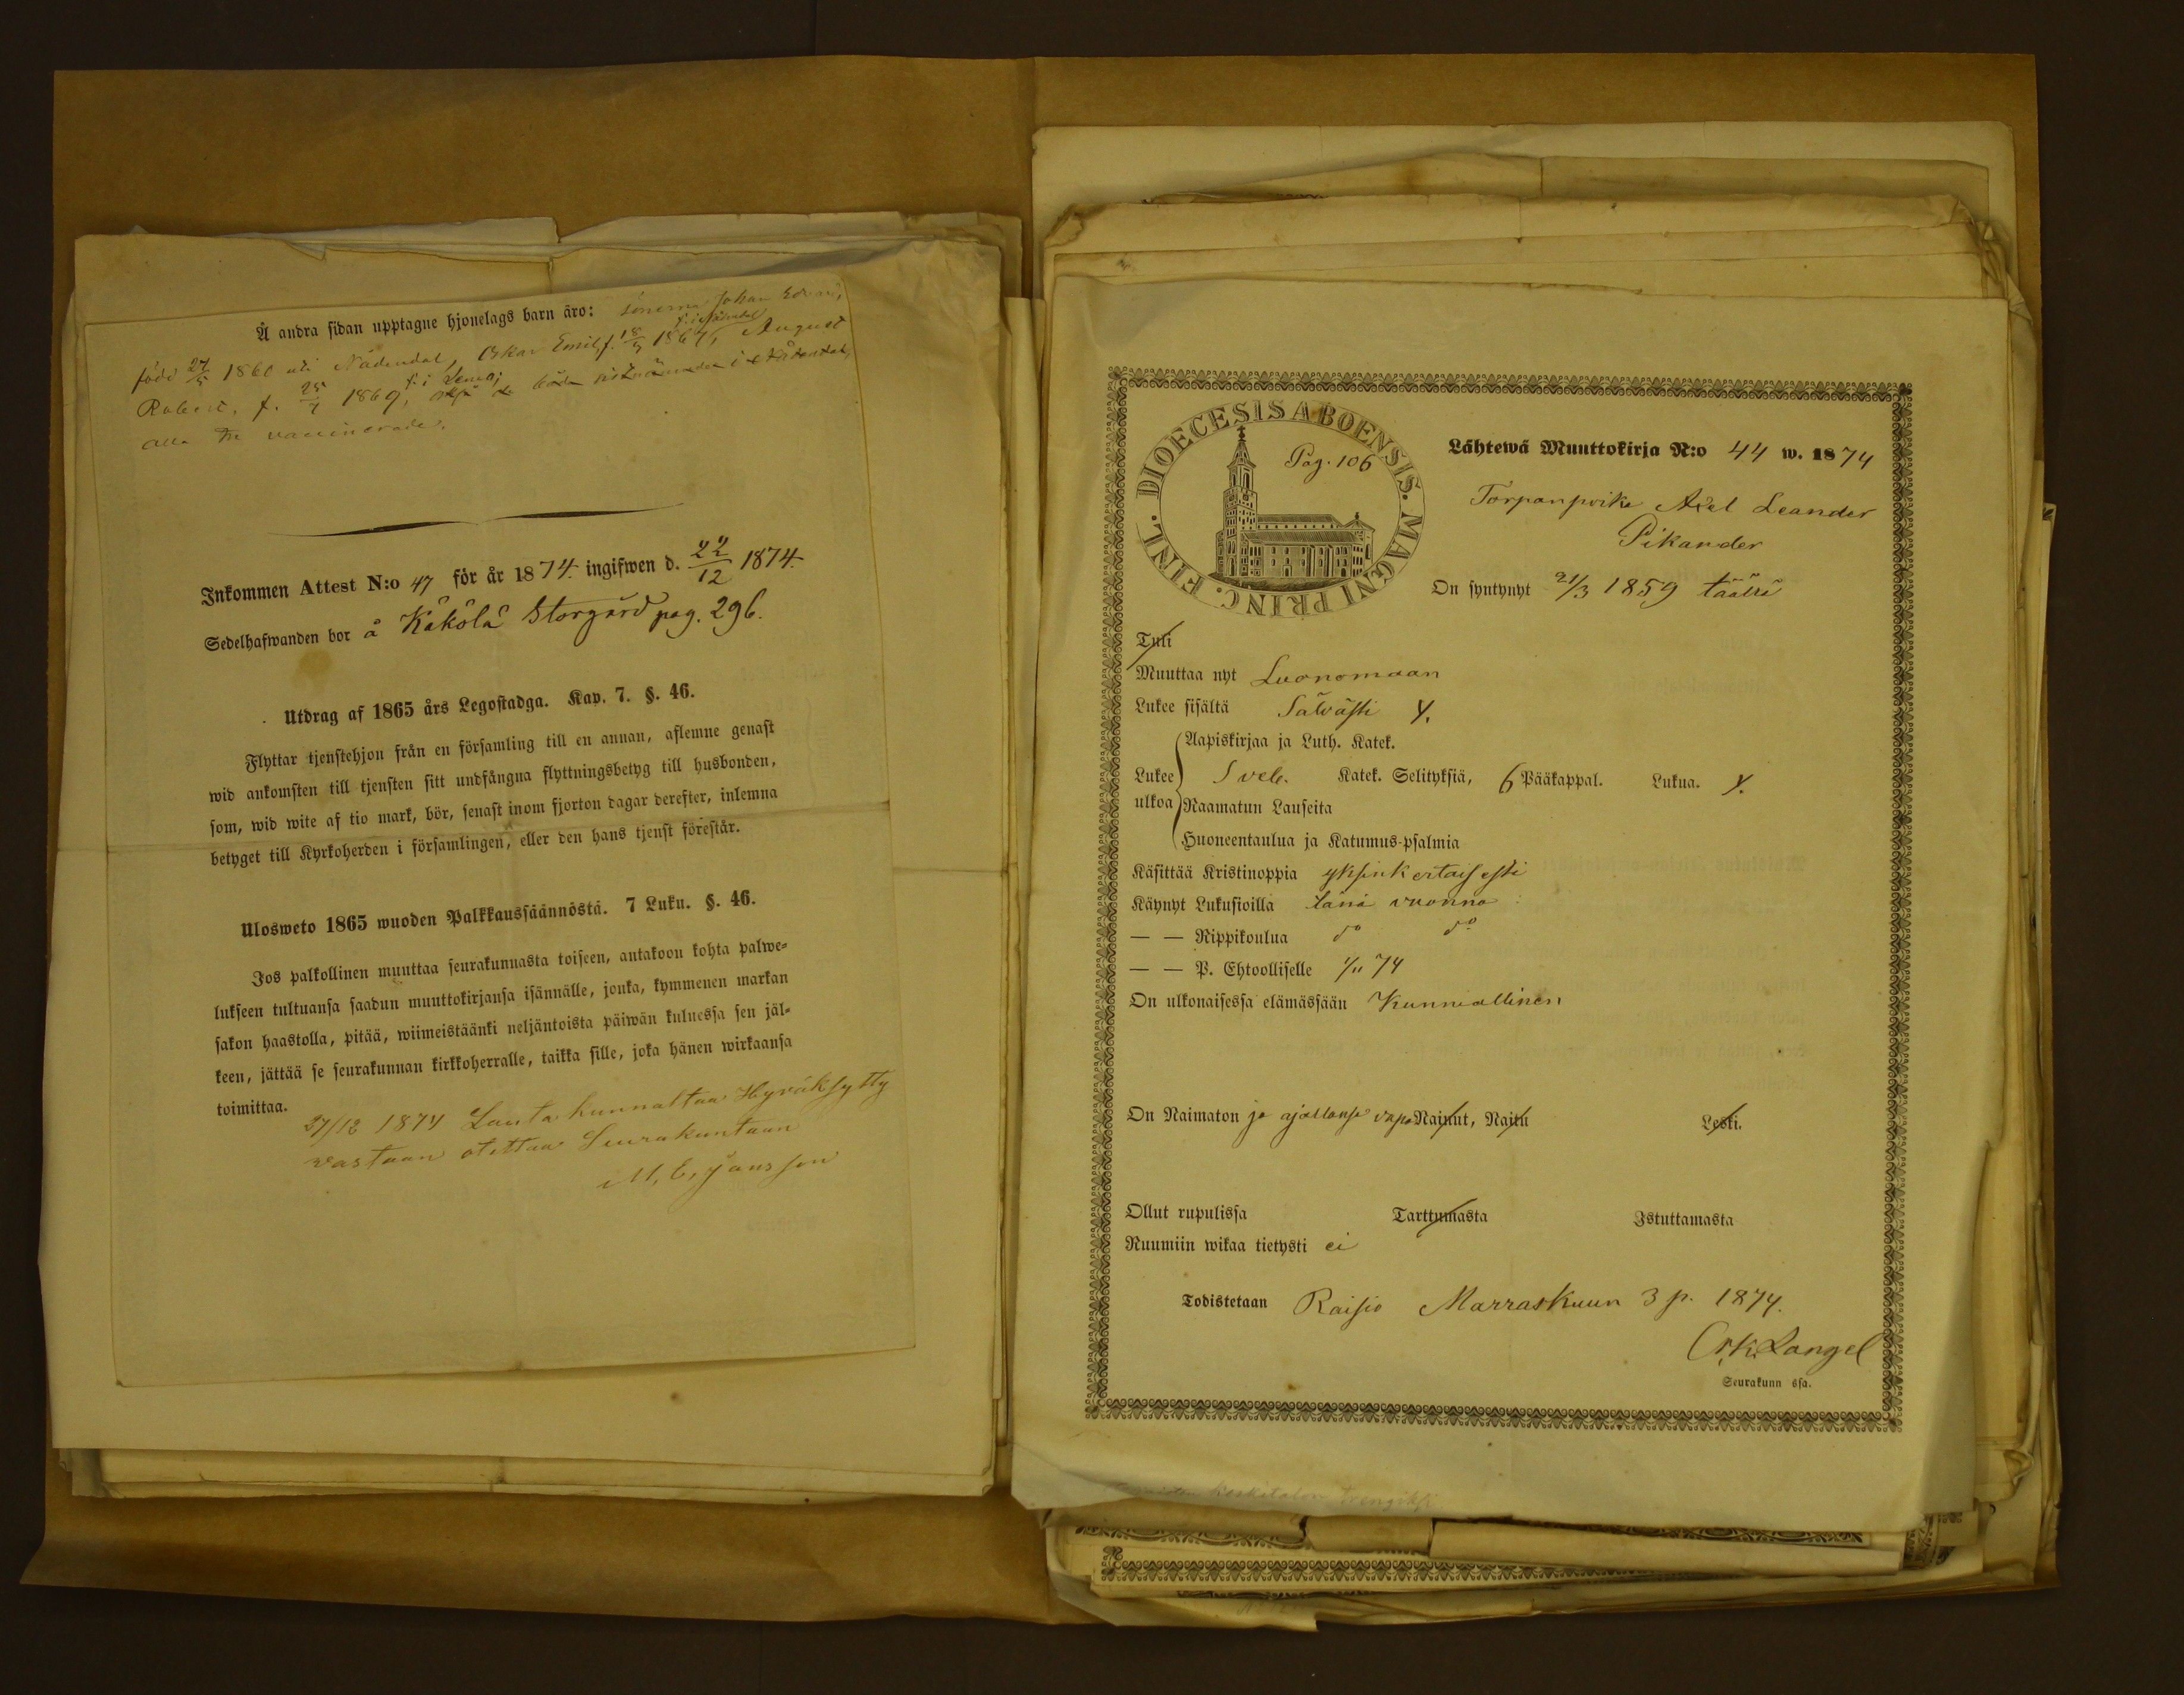 Å andra sidan upptagne hjonelags barn äro: sönerna Johan Edvard,
född 27/5 1860 uti Nådendal, Oskar Emil, f. 18/5 1867, f. i Nådendal August
Robert, f. 25/7 1869, f. i Lemo; båda i Nådendal,
alla tre vaccinerade.
Inkommen Attest N:o 47 för år 1874. ingifwen d. 22/12 1874.
Sedelhafwanden bor å Käkölä Storgård pag. 296.
Utdrag af 1865 års Legostadga. Kap. 7. §. 46.
Flyttar tjenstehjon från en församling till en annan, aflemne genast
wid ankomsten till tjensten sitt undfångna flyttningsbetyg till husbonden,
som, wid wite af tio mark, bör, senast inom fjorton dagar derefter, inlemna
betyget till Kyrkoherden i församlingen, eller den hans tjenst förestår.
Ulosweto 1865 wuoden Palkkaussäännöstä. 7 Luku. §. 46.
Jos palkollinen muuttaa seurakunnasta toiseen, antakoon kohta palwe-
lukseen tultuansa saadun muuttokirjansa isännälle, jonka, kymmenen markan
sakon haastolla, pitää, wiimeistäänki neljäntoista päiwän kuluessa sen jäl-
keen, jättää se seurakunnan kirkkoherralle, taikka sille, joka hänen wirkaansa
toimittaa.
27/12 1874 Lautakunnaltaa Hyväksytty
vastaan otettaa Seurakuntaan
M. E. Jansson
DIOECESIS ABOENSIS. MAGNI PRINC. FINL.
Pag. 106
Lähtewä Muuttokirja N:o 44 w. 1874
Torpanpoika Axel Leander
Pikander
On syntynyt 21/3 1859 täällä
Tuli
Muuttaa nyt Luonomaan
Lukee sisältä Sälvästi y.
Aapiskirjaa ja Luth. Katek.
Lukee Sveb. Katek. Selityksiä, 6 Pääkappal. Lukua. y.
ulkoa Raamatun Lauseita
Huoneentaulua ja Katumus-psalmia
Käsittää Kristinoppia yksinkertaisesti
Käynyt Lukusioilla tänä vuonna
— — Rippikoulua do do
— — P. Ehtoolliselle 1/11 74
On ulkonaisessa elämässään Kunniallinen
On Naimaton ja ajallansa vapa Nainut, Naitu Leski.
Ollut rupulissa Tarttumasta Istuttamasta
Ruumiin wikaa tietysti ei
Todistetaan Raisio Marraskuun 3 p. 1874.
Osk. Langel
Seurakunn ssa.
Keskitalon trengiksi